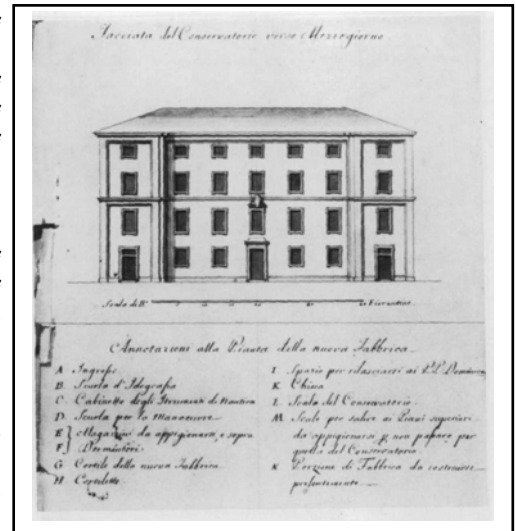 Facciata del Conservatorio verso Mezzogiorno.
Scala di B.
Annotazioni alla Pianta della nuova Fabbrica
A Ingresso
B. Scuola d'Idografia
C. Cabinetto degli Strumenti di Nautica
D. Scuola per la Manouvre
E } Magazini da appigionarsi, e sopra
F } Dormintori
G Cortile della nuova Fabbrica
H Cortiletto
I Spazio per rilasciarsi ai P.P. Domenicani
K Chiesa
L Scala del Conservatorio
M Scale per salire ai Piani superiori
da appigionarsi p. non passare per
quella del Conservatorio
Porzione di Fabbrica da costruirsi
presentemente